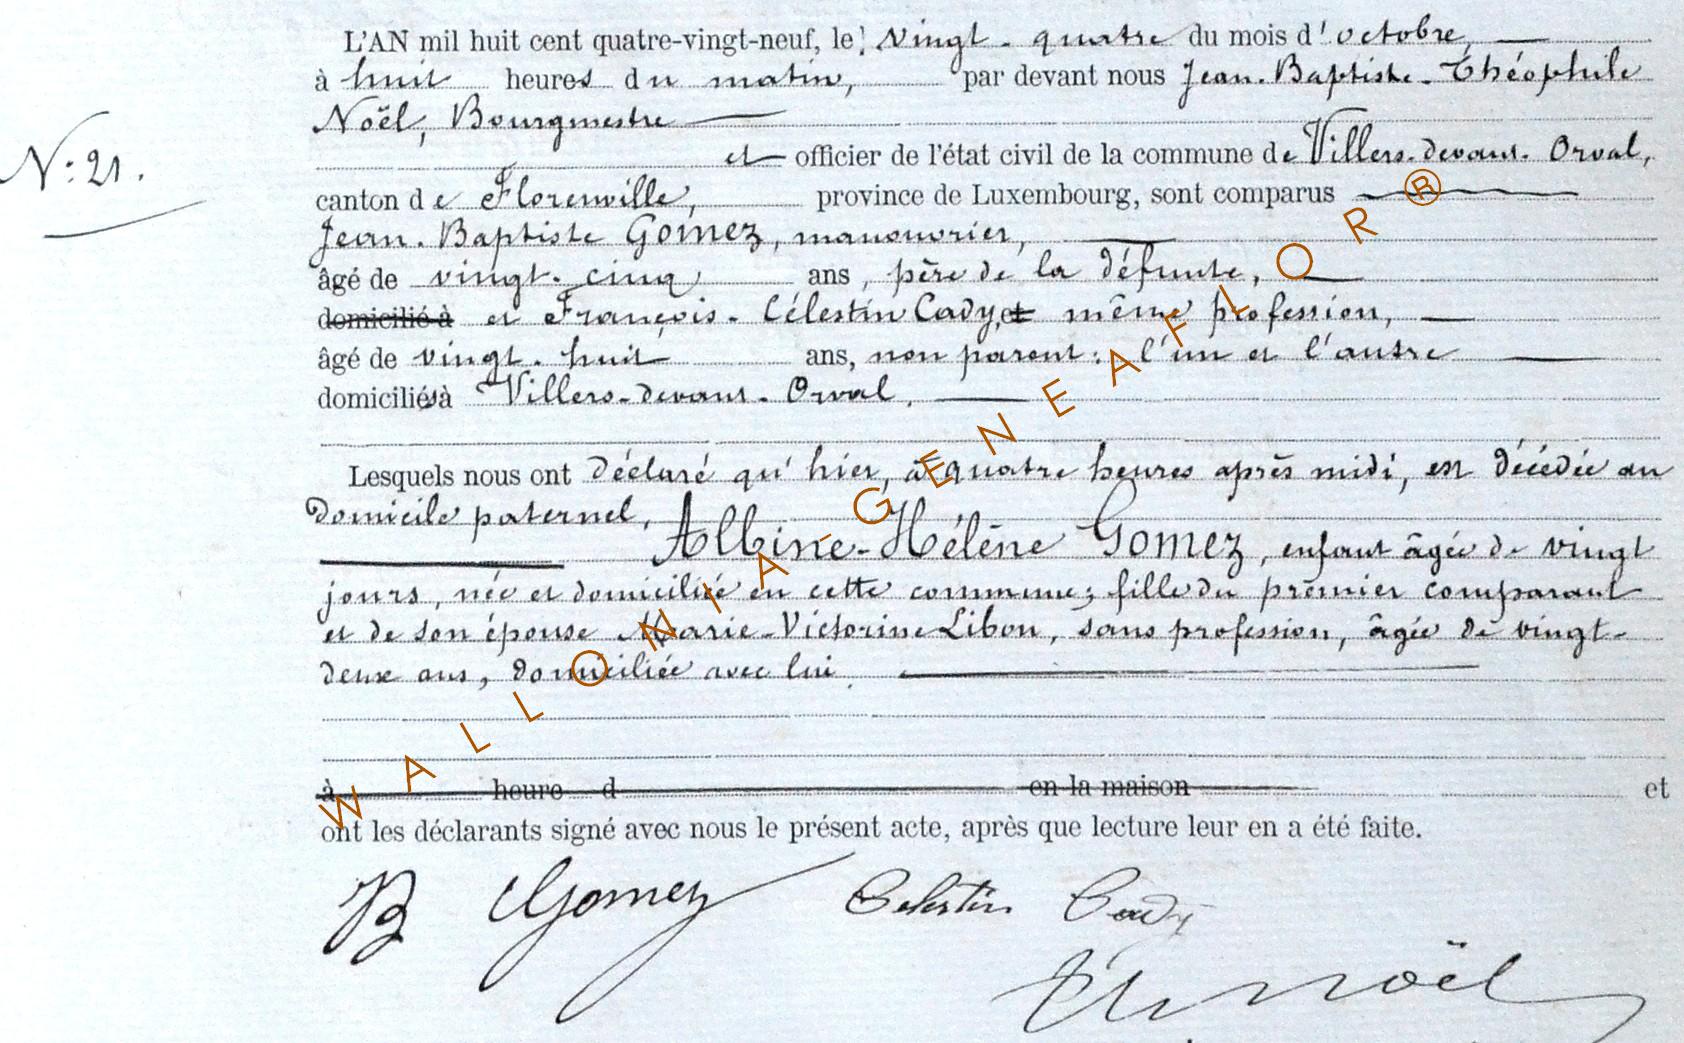 L'AN mil huit cent quatre-vingt-neuf, le vingt-quatre du mois d'octobre,
à huit heures du matin, par devant nous Jean-Baptiste-Théophile
Noël, Bourgmestre
N: 21.
et officier de l'état civil de la commune de Villers-devant-Orval,
canton de Florenville, province de Luxembourg, sont comparus
Jean-Baptiste Gomez, manouvrier,
âgé de vingt-cinq ans, père de la défunte,
domicilié à et François-Célestin Cady, et même profession,
âgé de vingt-huit ans, non parent: l'un et l'autre
domiciliés à Villers-devant-Orval,
Lesquels nous ont déclaré qu'hier, à quatre heures après midi, est décédée au
domicile paternel,
Albine-Hélène Gomez, enfant âgée de vingt
jours, née et domiciliée en cette commune; fille du prèmier comparant
et de son épouse Marie-Victorine Libon, sans profession, âgée de vingt-
deux ans, domiciliée avec lui.
à heure d en la maison et
ont les déclarants signé avec nous le présent acte, après que lecture leur en a été faite.
B Gomez Celestin Cady
Th Noël
WALLONIA GENEAFLOR ®